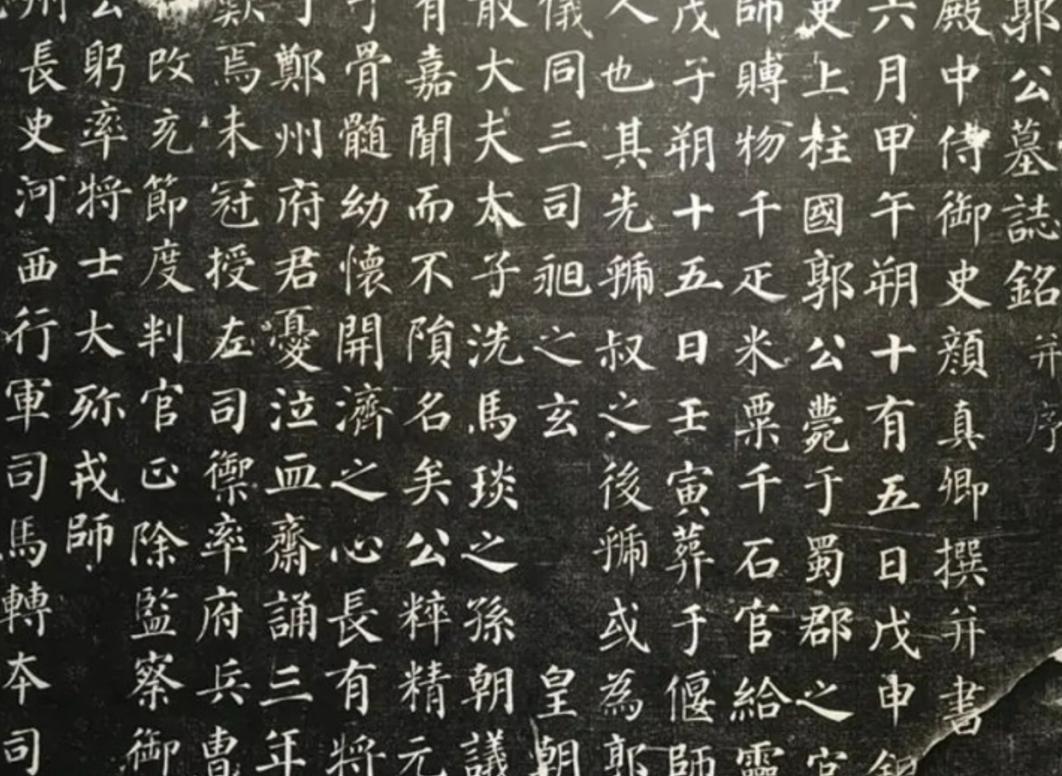 郭公墓誌銘并序
殿中侍御史顔真卿撰并書
六月甲午朔十有五日戊申
史上柱國郭公薨于蜀郡之官
師賻物千疋米粟千石官給靈
戊子朔十五日壬寅葬于偃師
人也其先虢叔之後虢或為郭
儀同三司昶之玄 皇朝
散大夫太子洗馬琰之孫朝議
有嘉聞而不隕名矣公粹精元
于骨髓幼懷開濟之心長有將
鄭州府君憂泣血齋誦三年
歎焉未冠授左司禦率府兵曹
改充節度判官正除監察御
公躬率將士大殄戎師
州長史河西行軍司馬轉本司